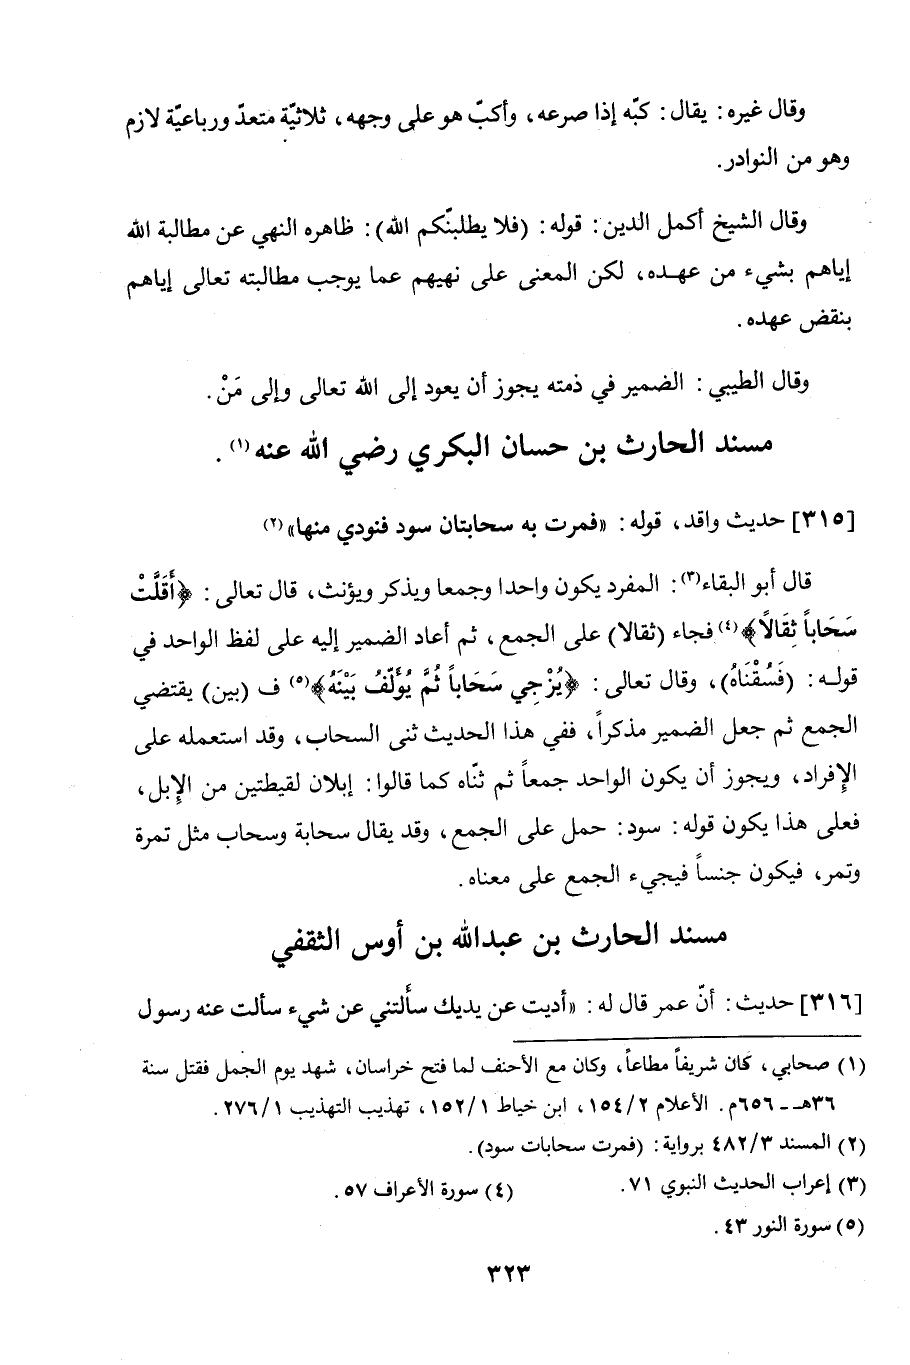 وقال غيره: يقال: كبّه إذا صرعه، وأكبّ هو على وجهه، ثلاثيّة متعدّ ورباعيّة لازم
وهو من النوادر.
وقال الشيخ أكمل الدين: قوله: (فلا يطلبنّكم الله): ظاهره النهي عن مطالبة الله
إياهم بشيء من عهده، لكن المعنى على نهيهم عما يوجب مطالبته تعالى إياهم
بنقض عهده.
وقال الطيبي: الضمير في ذمته يجوز أن يعود إلى الله تعالى وإلى مَنْ.
مسند الحارث بن حسان البكري رضي الله عنه (١).
[٣١٥] حديث واقد، قوله: «فمرت به سحابتان سود فنودي منها» (٢)
قال أبو البقاء (٣): المفرد يكون واحدا وجمعا ويذكر ويؤنث، قال تعالى: ﴿أَقَلَّتْ
سَحَاباً ثِقَالًا﴾ (٤) فجاء (ثقالا) على الجمع، ثم أعاد الضمير إليه على لفظ الواحد في
قوله: (فَسُقْنَاهُ)، وقال تعالى: ﴿يُزْجِي سَحَاباً ثُمَّ يُؤَلِّفُ بَيْنَهُ﴾ (٥) ف (بين) يقتضي
الجمع ثم جعل الضمير مذكراً، ففي هذا الحديث ثنى السحاب، وقد استعمله على
الإفراد، ويجوز أن يكون الواحد جمعاً ثم ثنّاه كما قالوا: إبلان لقيطتين من الإبل،
فعلى هذا يكون قوله: سود: حمل على الجمع، وقد يقال سحابة وسحاب مثل تمرة
وتمر، فيكون جنساً فيجيء الجمع على معناه.
مسند الحارث بن عبدالله بن أوس الثقفي
[٣١٦] حديث: أنّ عمر قال له: «أديت عن يديك سألتني عن شيء سألت عنه رسول
(١) صحابي، كان شريفاً مطاعاً، وكان مع الأحنف لما فتح خراسان، شهد يوم الجمل فقتل سنة
٣٦هـ - ٦٥٦م. الأعلام ١٥٤/٢، ابن خياط ١٥٢/١، تهذيب التهذيب ٢٧٦/١.
(٢) المسند ٤٨٢/٣ برواية: (فمرت سحابات سود).
(٣) إعراب الحديث النبوي ٧١. (٤) سورة الأعراف ٥٧.
(٥) سورة النور ٤٣.
٣٢٣